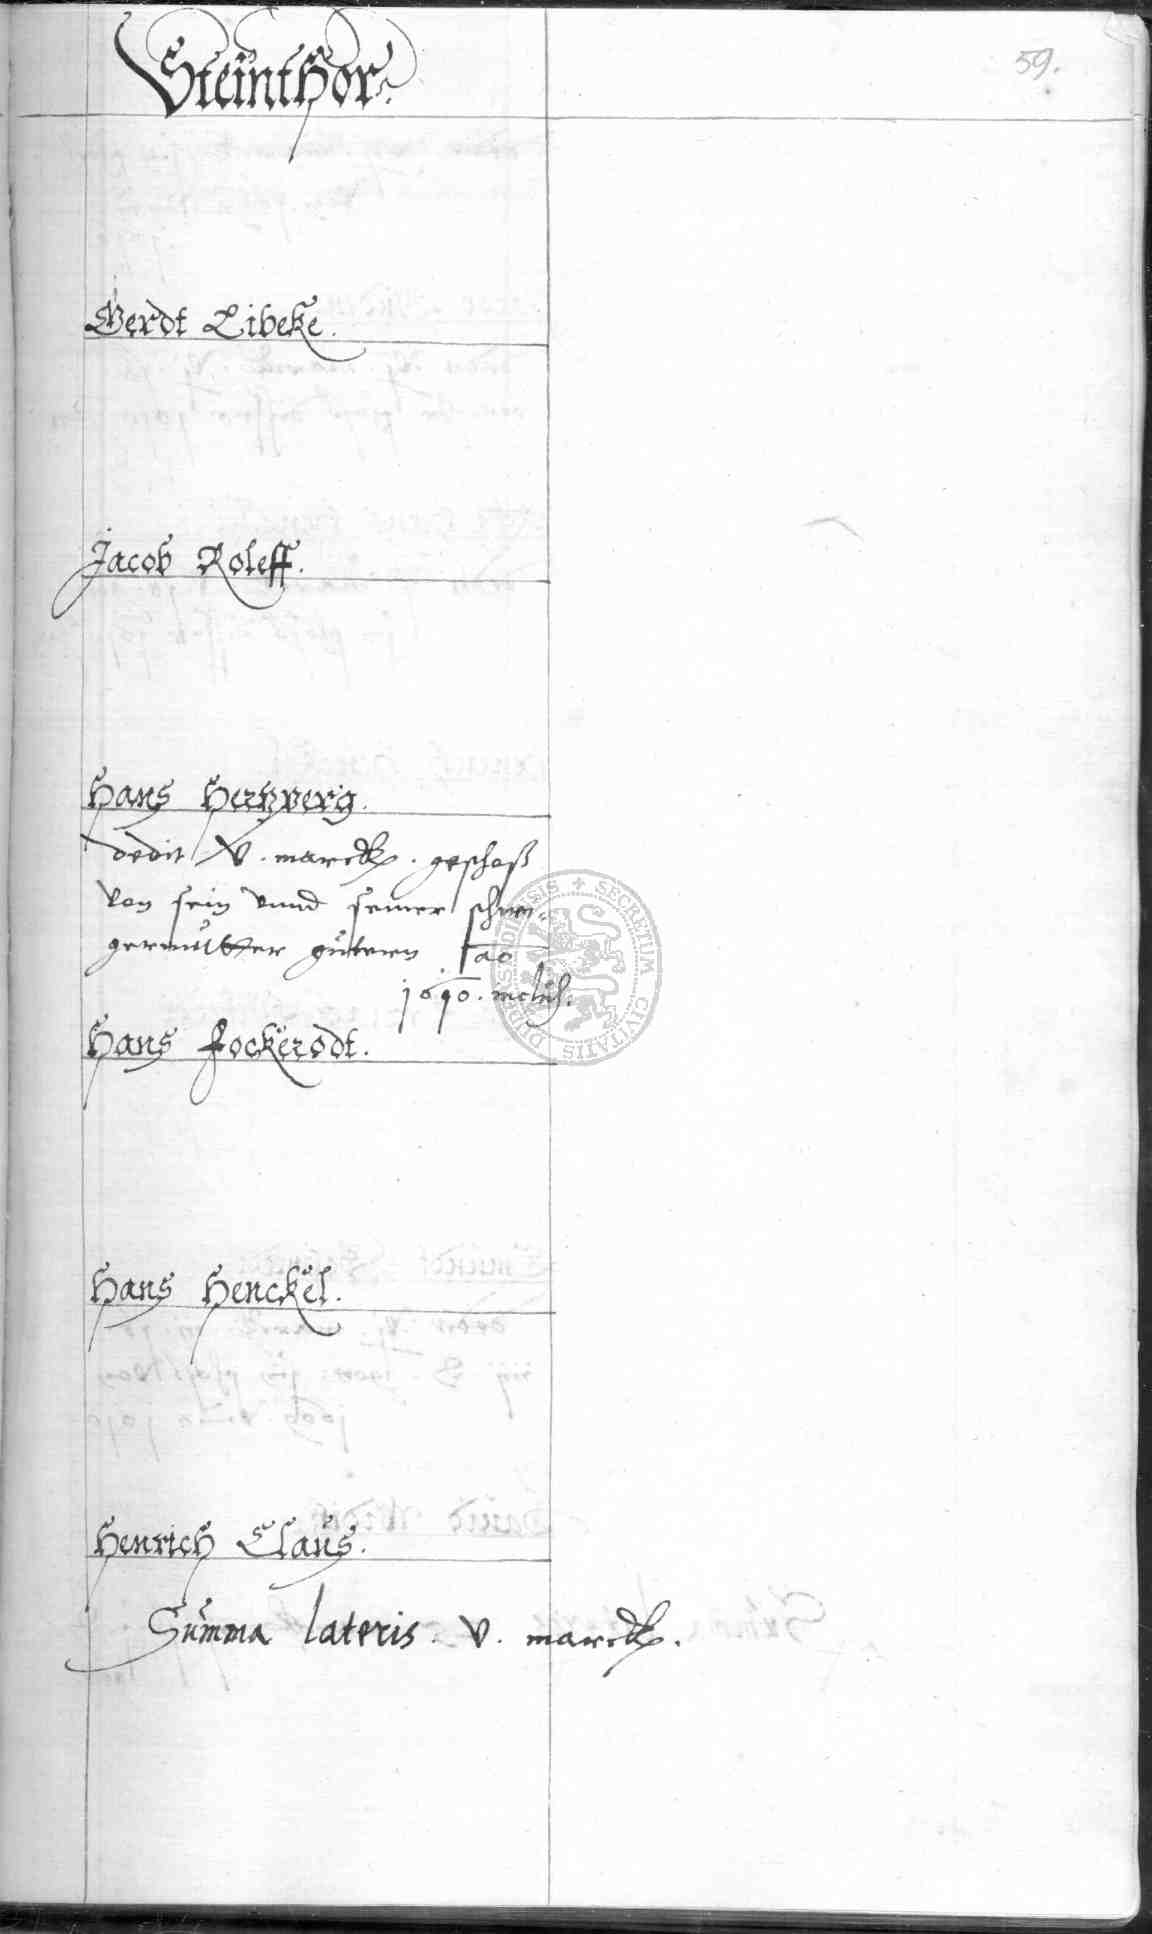 Steinthor.
59.
Gerdt Libeke.
Jacob Roleff.
Hans Hertzberg.
dedit v. marck. geschoß
von sein vnnd seiner schwi-
germutter gütern ao
1610. inclus.
Hans Fockerodt.
Hans Henckel.
Henrich Claus.
Summa lateris. v. marck.
SECRETUM CIVITATIS DUDERSTADIENSIS